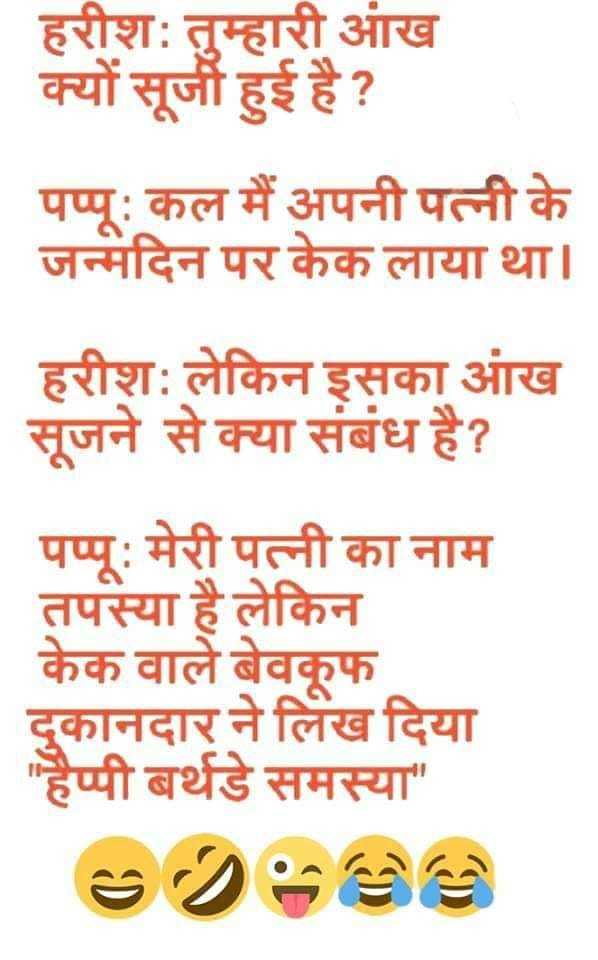 हरीश: तुम्हारी आंख
क्यों सूजी हुई है ?
पप्पू: कल मैं अपनी पत्नी के
जन्मदिन पर केक लाया था।
हरीश: लेकिन इसका आंख
सूजने से क्या संबंध है?
पप्पू: मेरी पत्नी का नाम
तपस्या है लेकिन
केक वाले बेवकूफ
दुकानदार ने लिख दिया
"हैप्पी बर्थडे समस्या"